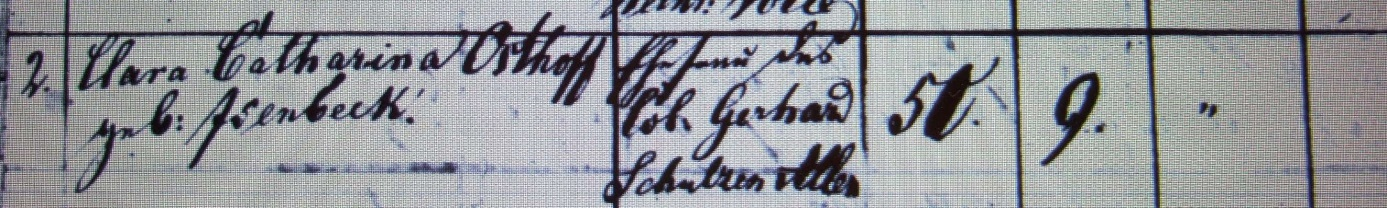 2. Clara Catharina Osthoff
geb: Isenbeck.
Ehefrau des
Col. Gerhard
Schulzen
9.
"